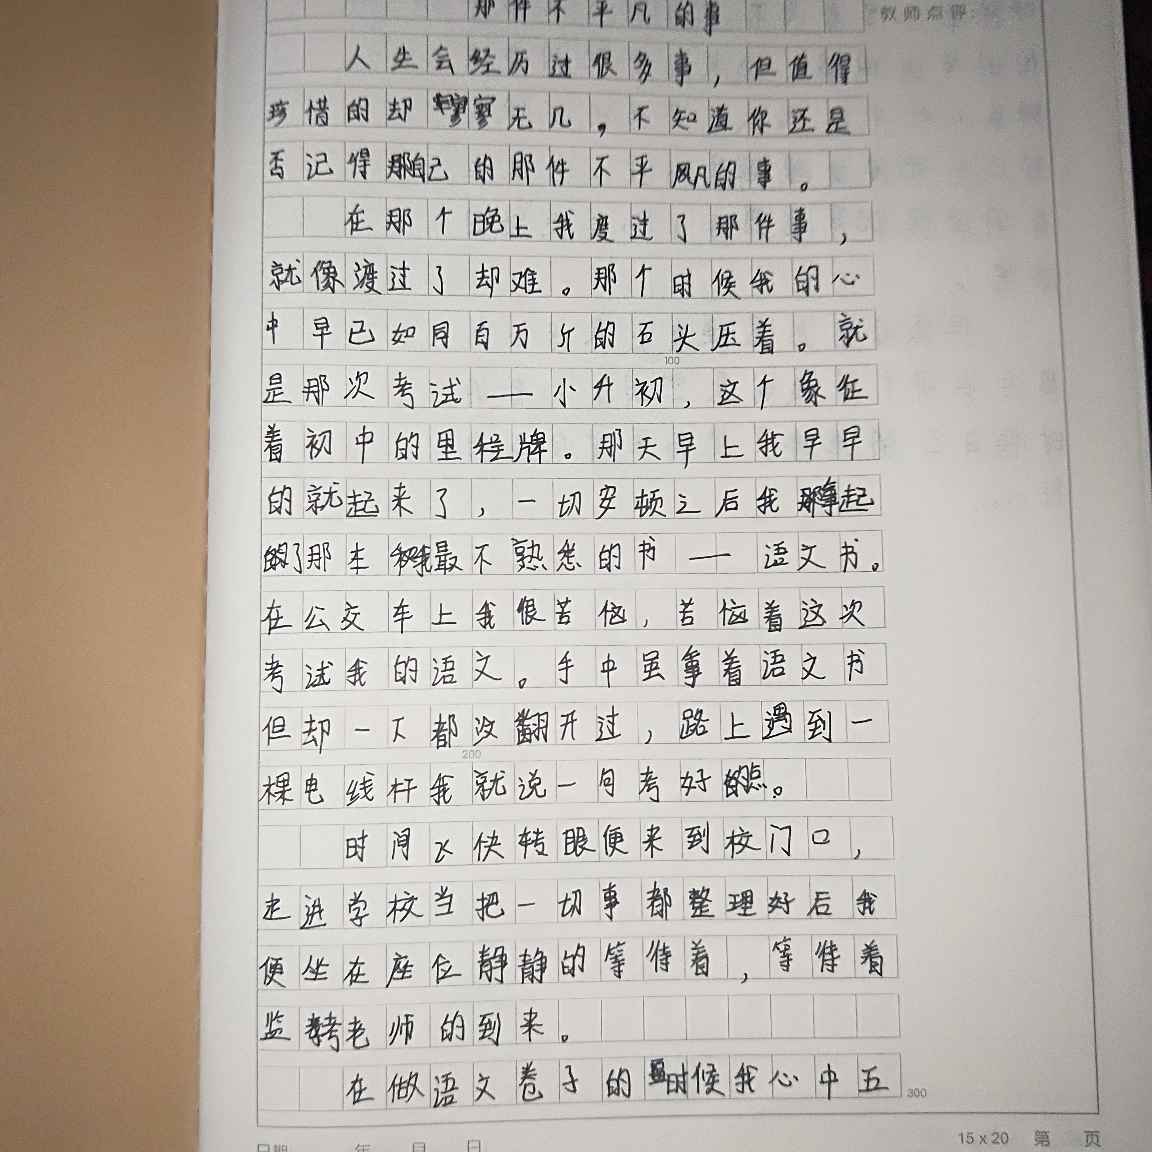 那件不平凡的事
教师点评:
人生会经历过很多事，但值得
珍惜的却寥寥无几，不知道你还是
否记得那自己的那件不平凡的事。
在那个晚上我度过了那件事，
就像渡过了却难。那个时候我的心
中早已如同百万斤的石头压着。就
100
是那次考试——小升初，这个象征
着初中的里程牌。那天早上我早早
的就起来了，一切安顿之后我拿起
了那本我最不熟悉的书——语文书。
在公交车上我很苦恼，苦恼着这次
考试我的语文。手中虽拿着语文书
但却一下都没翻开过，路上遇到一
200
棵电线杆我就说一句考好点。
时间飞快转眼便来到校门口，
走进学校当把一切事都整理好后我
便坐在座位静静的等待着，等待着
监考老师的到来。
在做语文卷子的时候我心中五
300
日期 年 月 日
15 x 20 第 页